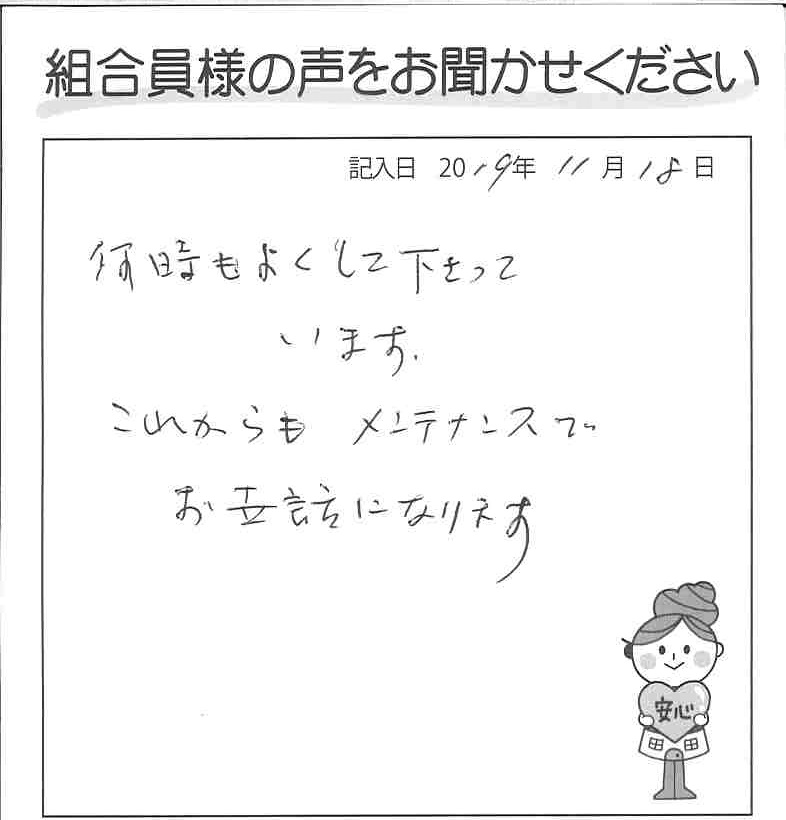 組合員様の声をお聞かせください
記入日 2019年 11月 18日
何時もよくして下さって
います.
これからも メンテナンスで
お世話になります
安心